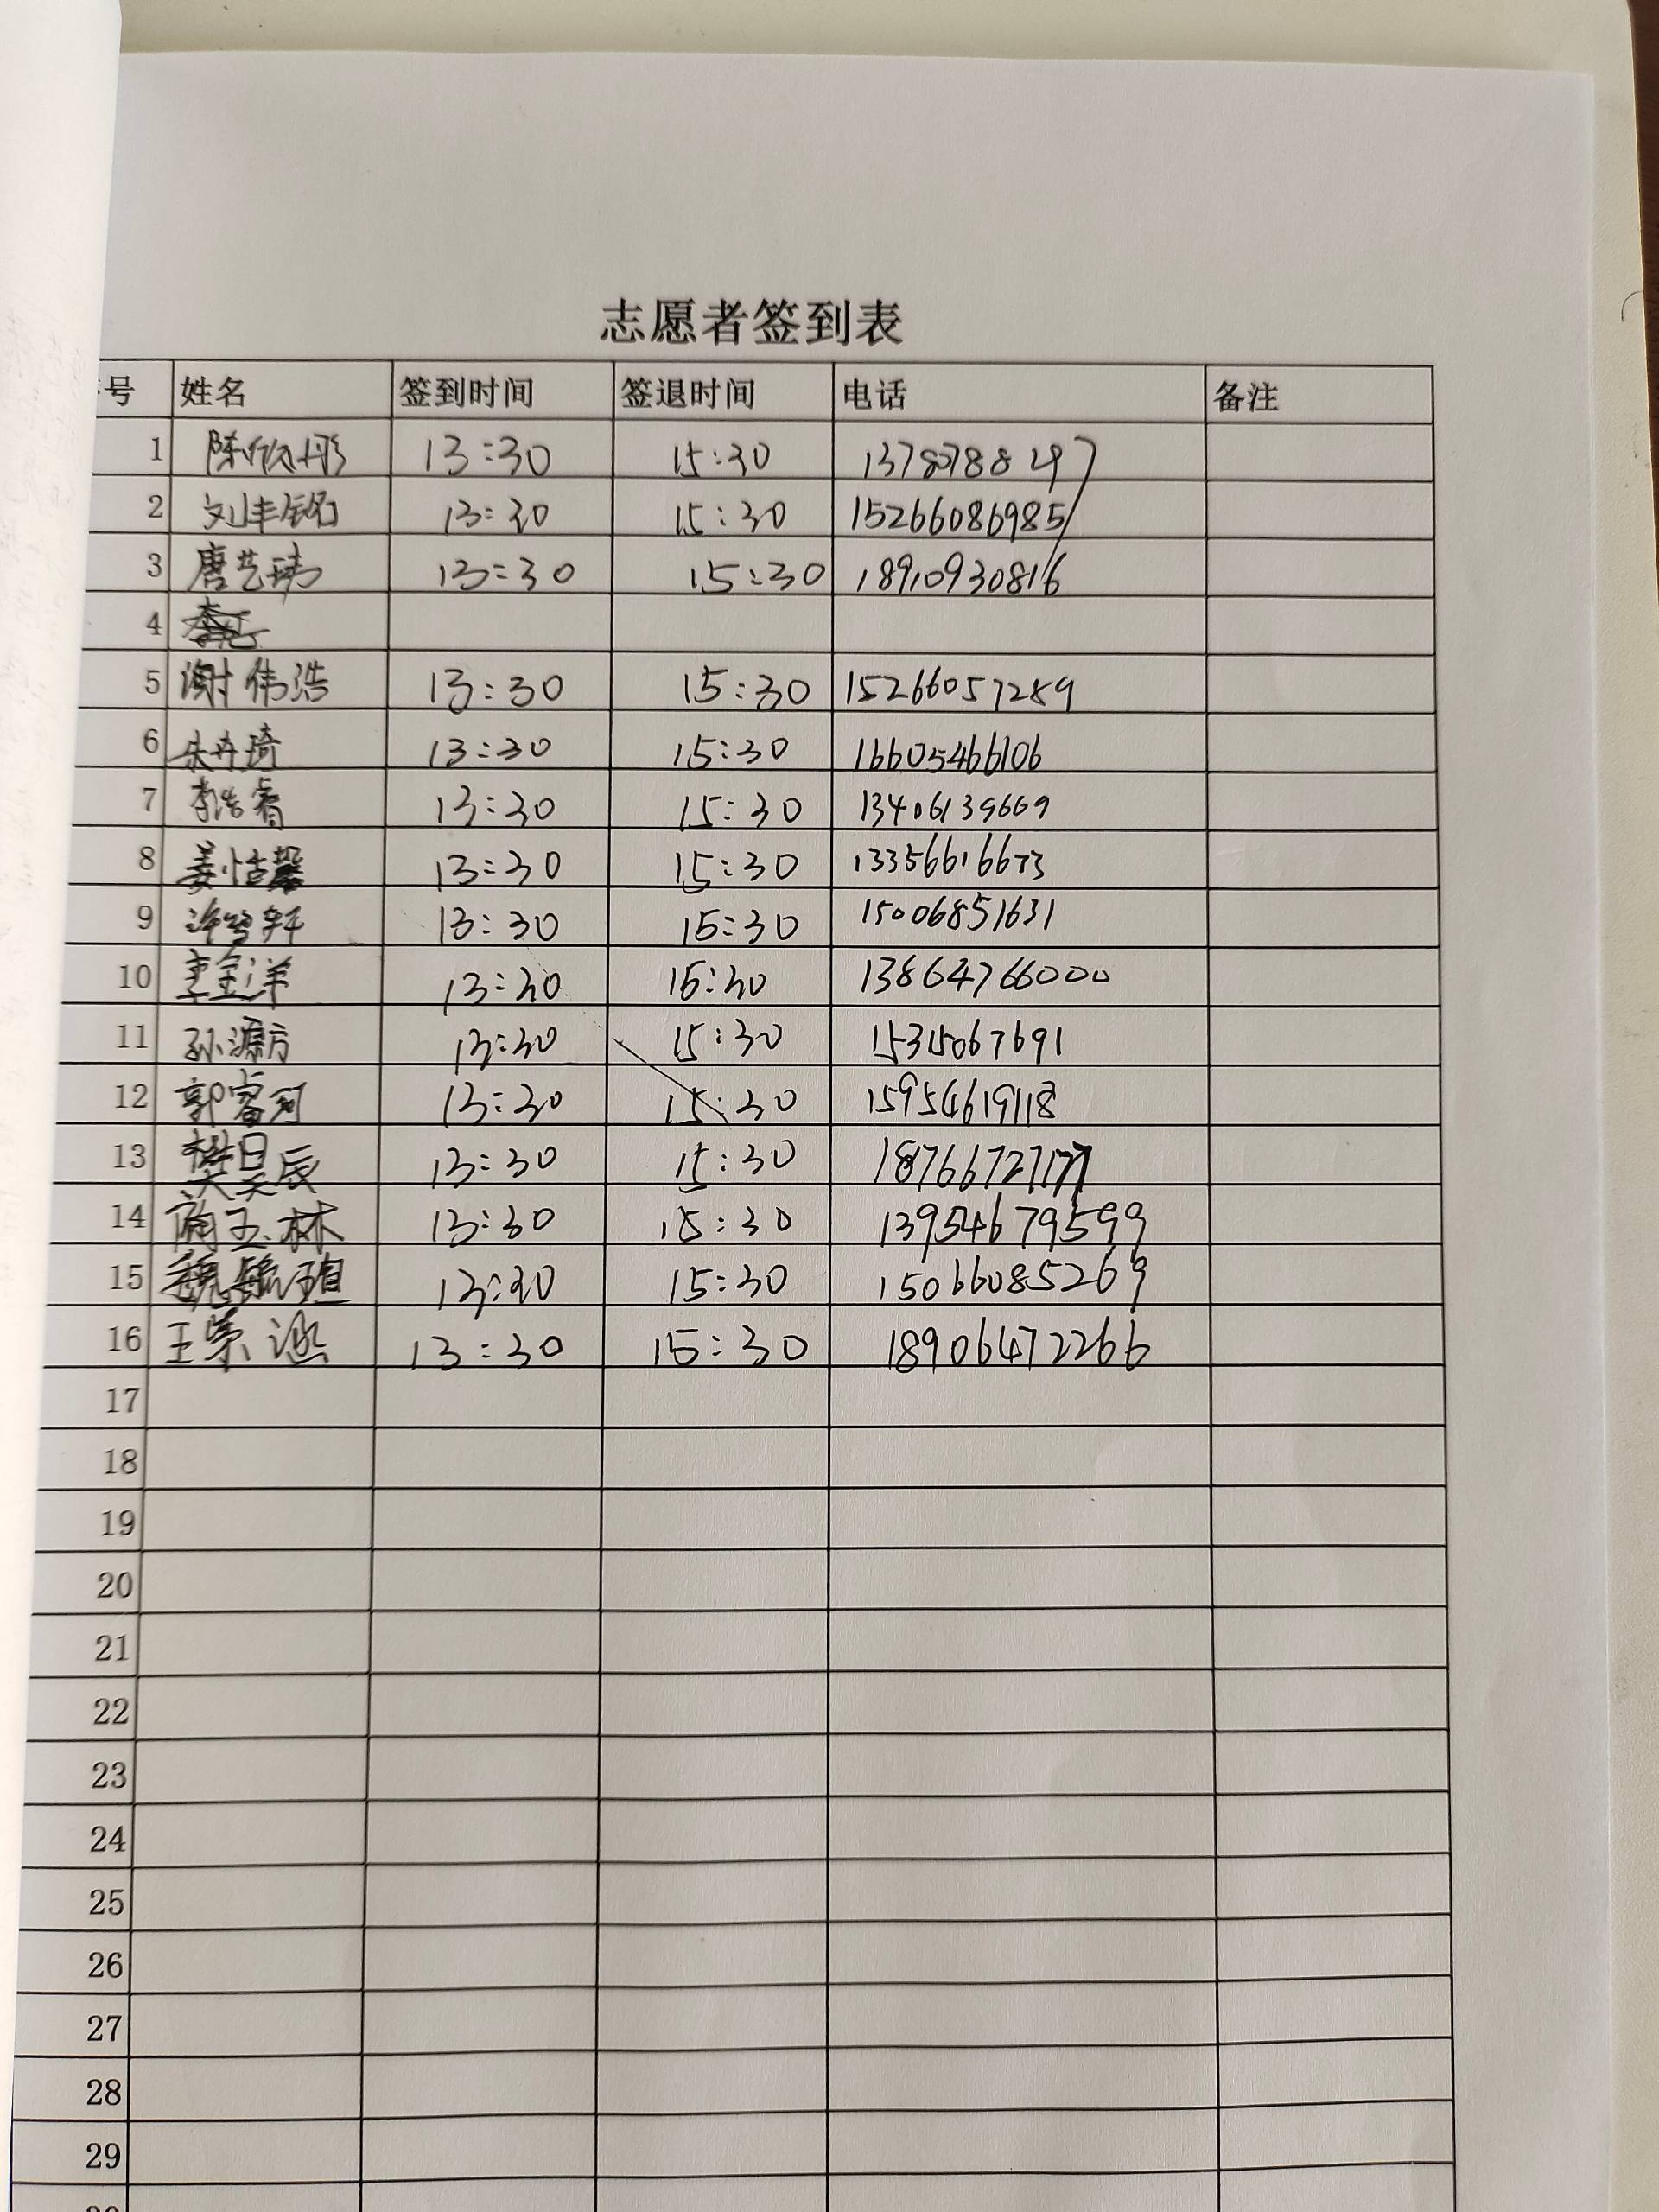 志愿者签到表
号 姓名 签到时间 签退时间 电话 备注
1 陈 13:30 15:30
2 刘丰铭 13:30 15:30 15266086985
3 唐艺玮 13:30 15:30 18910930816
4
5 谢伟浩 13:30 15:30 15266057289
6 朱丹琦 13:30 15:30 16605466106
7 李浩睿 13:30 15:30 13406139669
8 姜恬馨 13:30 15:30 13356616673
9 许 轩 13:30 15:30 15006851631
10 李金洋 13:30 15:30 13864766000
11 孙源方 13:30 15:30 15315067691
12 郭睿 13:30 15:30 15954619118
13 樊昊辰 13:30 15:30
14 玉林 13:30 15:30 13954679599
15 魏 13:30 15:30 15066085269
16 王 涵 13:30 15:30 18906472266
17
18
19
20
21
22
23
24
25
26
27
28
29